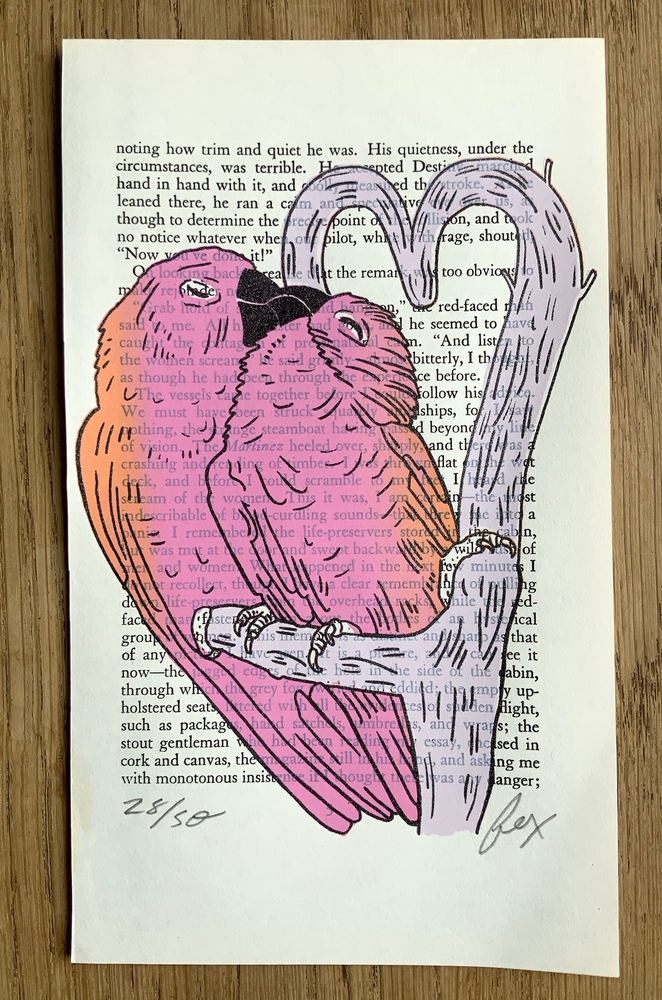 noting how trim and quiet he was. His quietness, under the
circumstances, was terrible. He accepted Destiny, marched
hand in hand with it, and coolly measured the stroke. As he
leaned there, he ran a calm and speculative eye over us, as
though to determine the precise point of the collision, and took
no notice whatever when our pilot, white with rage, shouted,
“Now you’ve done it!”
On looking back, I realize that the remark was too obvious to
make rejoinder necessary.
“Grab hold of something and hang on,” the red-faced man
said to me. All his bluster had gone, and he seemed to have
caught the contagion of preternatural calm. “And listen to
the women scream,” he said grimly—almost bitterly, I thought,
as though he had been through the experience before.
The vessels came together before I could follow his advice.
We must have been struck squarely amidships, for I saw
nothing, the strange steamboat having passed beyond my line
of vision. The Martinez heeled over, sharply, and there was a
crashing and rending of timber. I was thrown flat on the wet
deck, and before I could scramble to my feet I heard the
scream of the women. This it was, I am certain—the most
indescribable of blood-curdling sounds—that threw me into a
panic. I remembered the life-preservers stored in the cabin,
but was met at the door and swept backward by a wild rush of
men and women. What happened in the next few minutes I
do not recollect, though I have a clear remembrance of pulling
down life-preservers from the overhead racks, while the red-
faced man fastened them about the bodies of an hysterical
group of women. This memory is as distinct and sharp as that
of any picture I have seen. It is a picture, and I can see it
now—the jagged edges of the hole in the side of the cabin,
through which the grey fog swirled and eddied; the empty up-
holstered seats, littered with all the evidences of sudden flight,
such as packages, hand satchels, umbrellas, and wraps; the
stout gentleman who had been reading my essay, encased in
cork and canvas, the magazine still in his hand, and asking me
with monotonous insistence if I thought there was any danger;
28/50